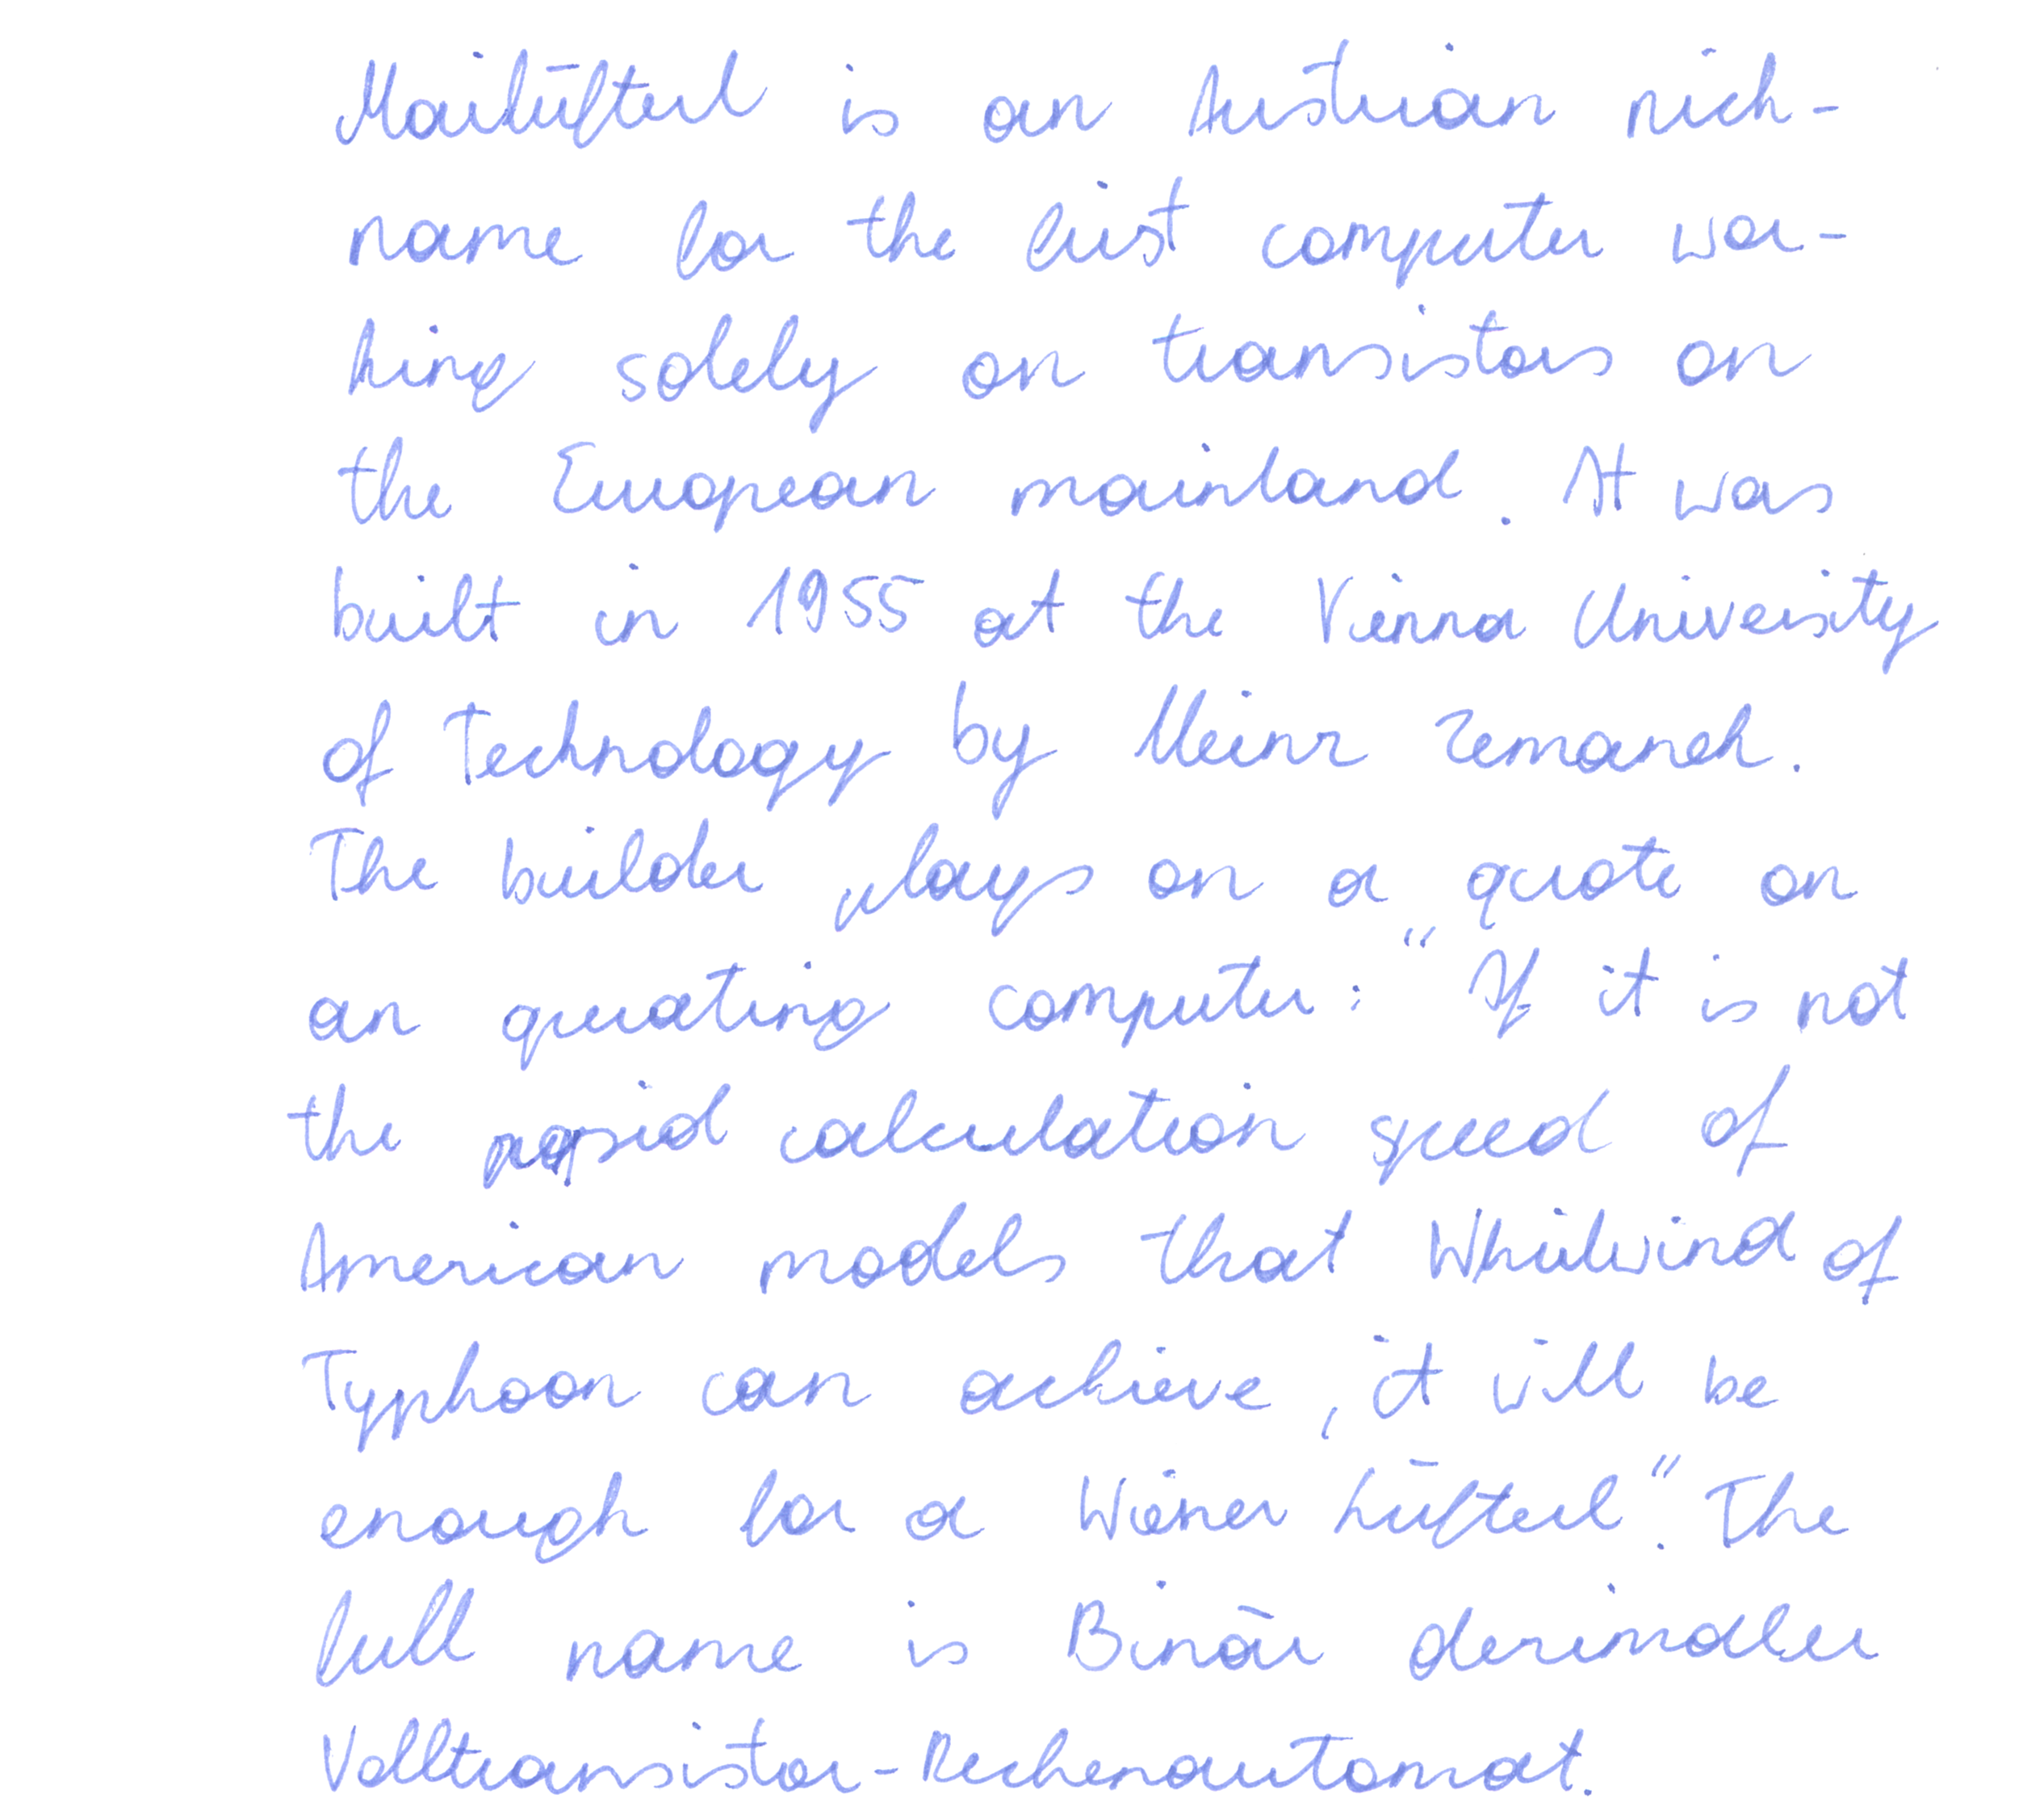 Mailüfterl is an Austrian nick-
name for the first computer wor-
king solely on transistors on
the European mainland. It was
built in 1955 at the Vienna University
of Technology by Heinz Zemanek.
The builder plays on a quote on
an operating computer: "If it is not
the rapid calculation speed of
American models that Whirlwind of
Typhoon can achieve, it will be
enough for a Wiener Lüfterl". The
full name is Binär dezimaler
Volltransistor-Rechenautomat.